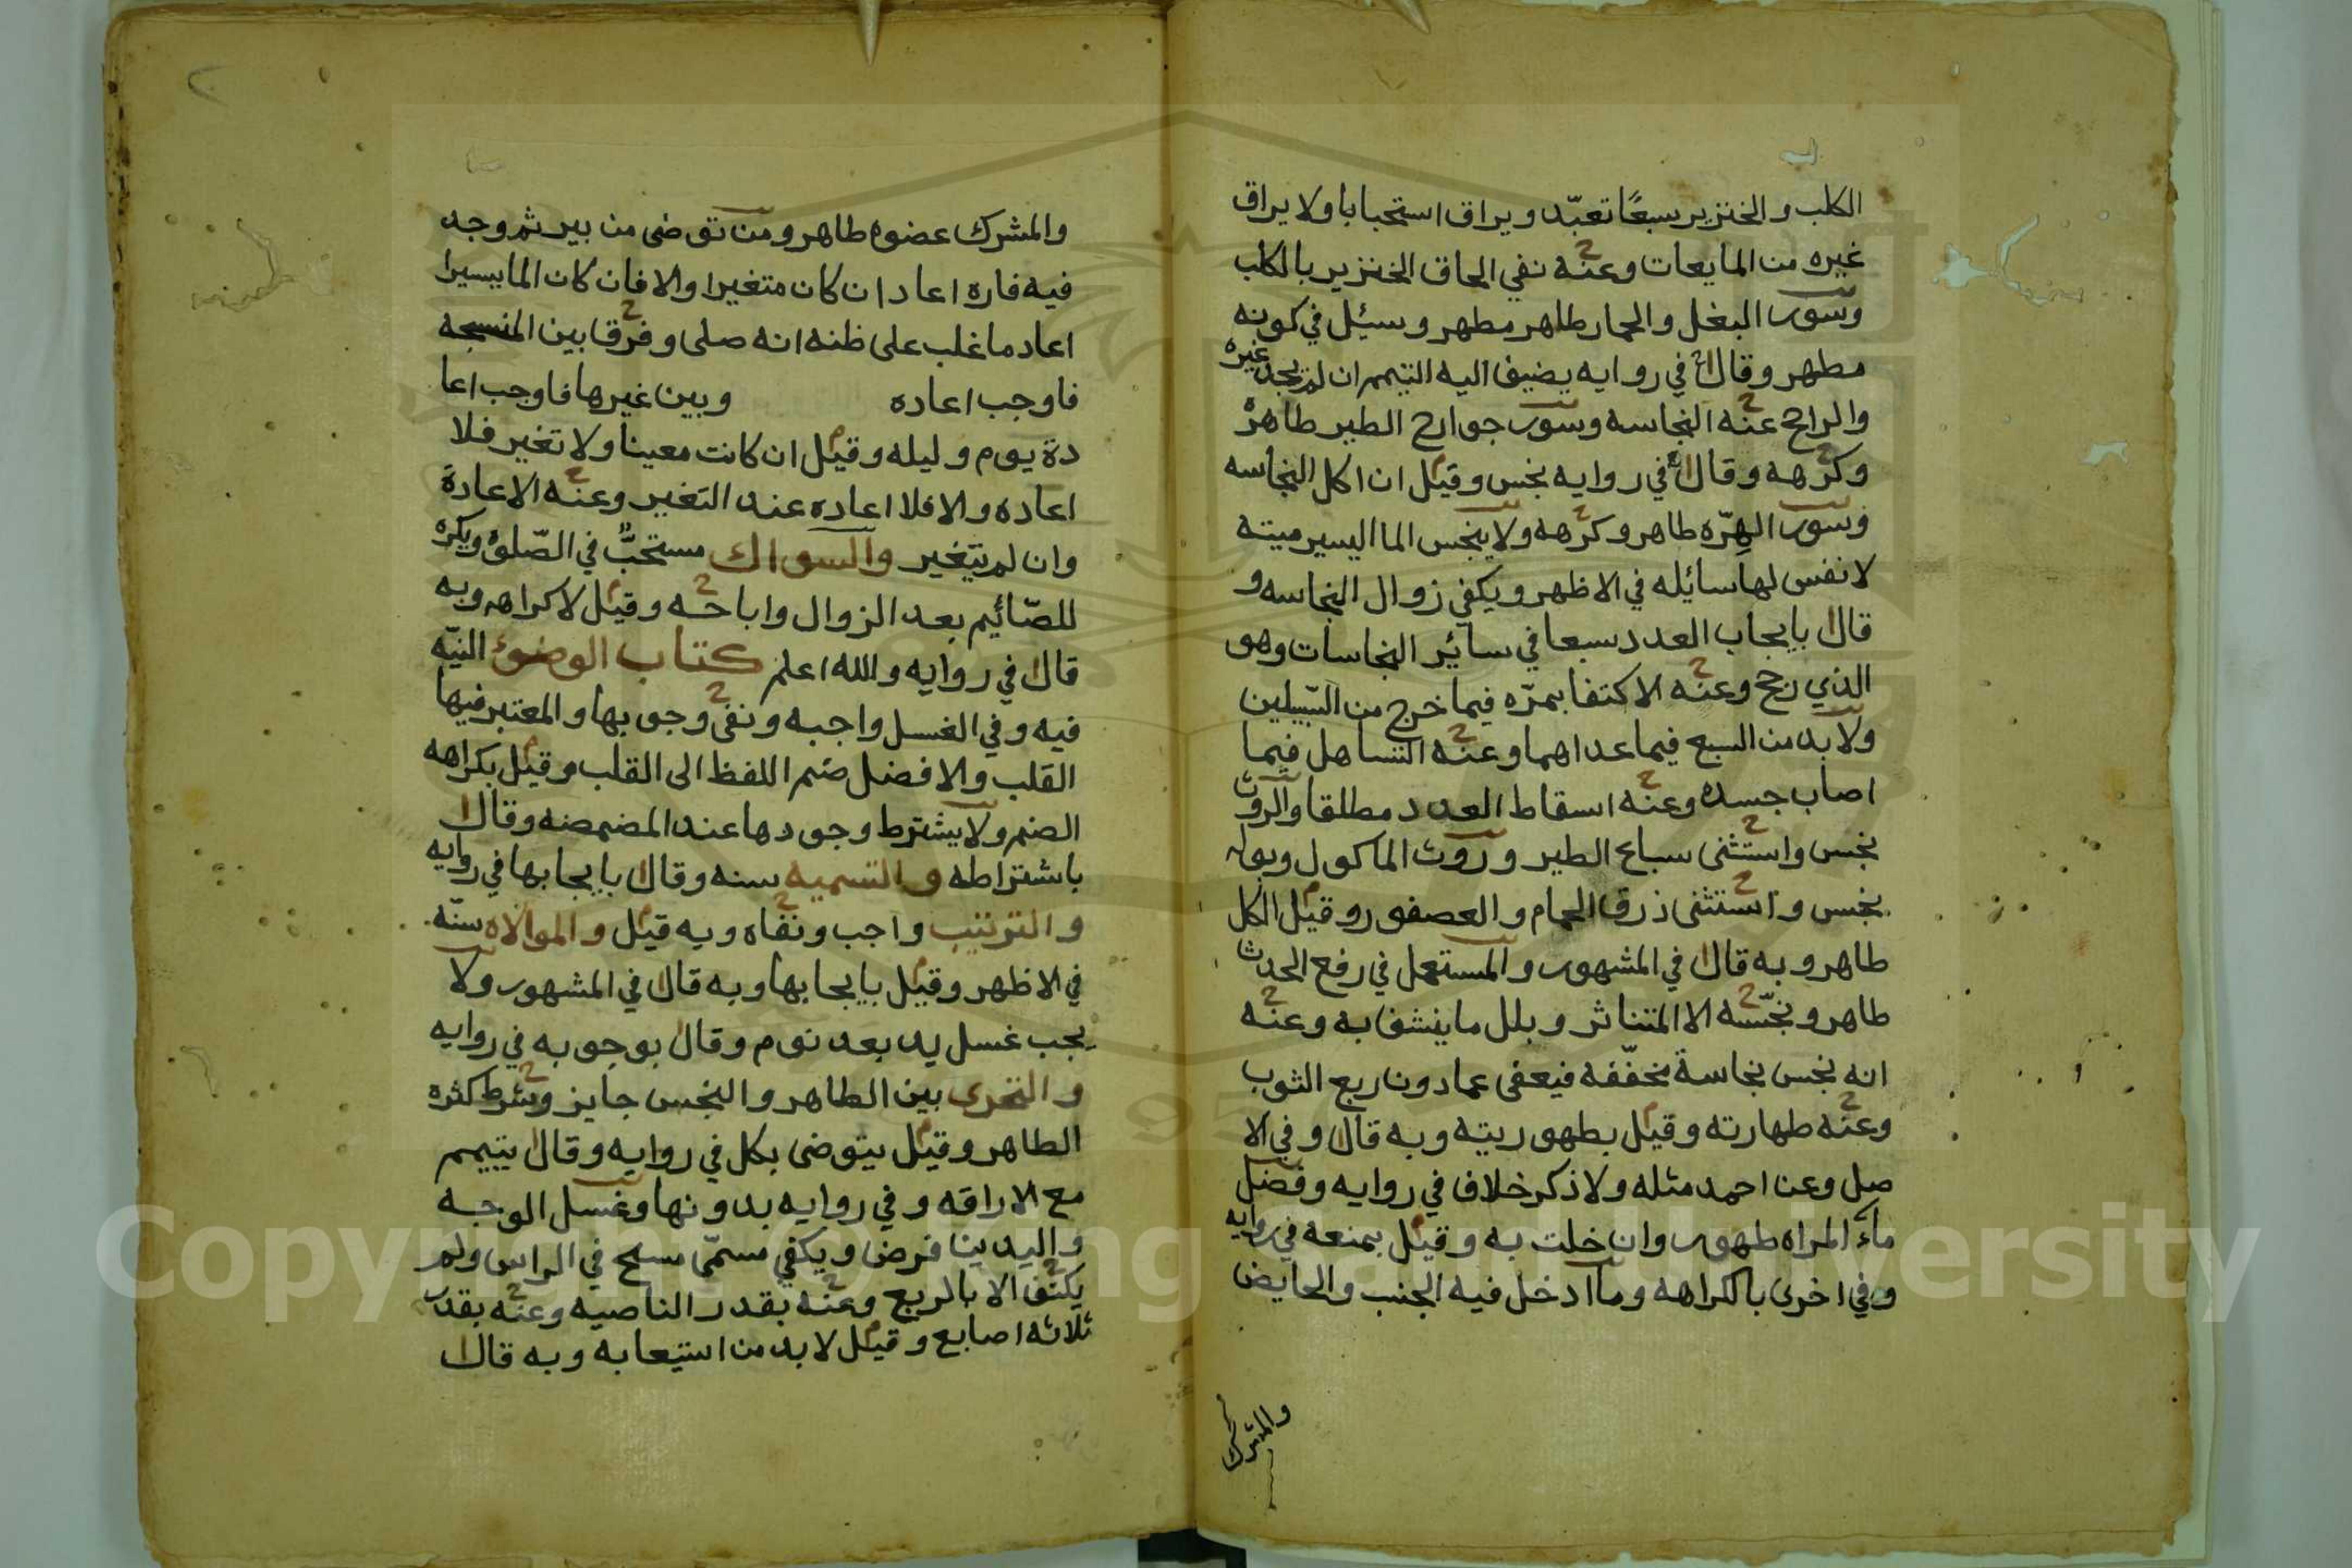 الكلب والخنزير سبعًا تعبّد ويراق استحبابا ولا يراق
غيره من المايعات وعنه نفي الحاق الخنزير بالكلب
وسور البغل والحمار طاهر مطهر وسئل في كونه
مطهر وقال في روايه يضيف اليه التيمم ان لم يجد غيره
والراجح عنه النجاسه وسور جوارح الطير طاهر
وكرهه وقال في روايه نجس وقيل ان اكل النجاسه
وسور الهرّه طاهر وكرهه ولا ينجس الما اليسير ميتة
لا نفس لها سائله في الاظهر ويكفي زوال النجاسه و
قال بايجاب العدد سبعا في سائر النجاسات وهو
الذي رجح وعنه الاكتفا بمرّه فيما خرج من السّبيلين
ولا بد من السبع فيما عداهما وعنه التساهل فيما
اصاب جسده وعنه اسقاط العدد مطلقا والروث
نجس واستثنى سباع الطير وروث الماكول وبوله
نجس واستثنى ذرق الحمام والعصفور وقيل الكل
طاهر وبه قال في المشهور والمستعمل في رفع الحدث
طاهر ونجّسه الا المتناثر وبلل ما ينشف به وعنه
انه نجس نجاسة مخفّفه فيعفى عما دون ربع الثوب
وعنه طهارته وقيل بطهوريته وبه قال وفي الا
صل وعن احمد مثله ولا ذكر خلاف في روايه وفضل
ماء المراه طهور وان خلت به وقيل بمنعه في روايه
وفي اخرى بالكراهه وما ادخل فيه الجنب والحايض
والمشرك
والمشرك عضوه طاهر ومن توضى من بير ثم وجد
فيه فاره اعاد ان كان متغيرا والا فان كان الما يسيرا
اعاد ما غلب على ظنه انه صلى وفرقا بين المنسجه
فاوجب اعاده وبين غيرها فاوجب اعا
دة يوم وليله وقيل ان كانت معينا ولا تغير فلا
اعاده والا فلا اعاده عند التغير وعنه الاعادة
وان لم يتغير والسواك مستحبٌّ في الصّلوة ويكره
للصّائيم بعد الزوال واباحه وقيل لا كراهه وبه
قال في روايه والله اعلم كتاب الوضوء النيّه
فيه وفي الغسل واجبه ونفى وجوبها والمعتبر فيها
القلب والافضل ضم اللفظ الى القلب وقيل بكراهه
الضم ولا يشترط وجودها عند المضمضه وقال
باشتراطه والتسميه سنه وقال بايجابها في روايه
والترتيب واجب ونفاه وبه قيل والموالاه سنّه
في الاظهر وقيل بايجابها وبه قال في المشهور ولا
يجب غسل يد بعد نوم وقال بوجوبه في روايه
والتحرى بين الطاهر والنجس جايز وشرط كثره
الطاهر وقيل يتوضى بكل في روايه وقال يتيمم
مع الاراقه وفي روايه بدونها وغسل الوجه
واليدين فرض ويكفي مسمّى مسح في الراس ولم
يكتف الا بالربع وعنه بقدر الناصيه وعنه بقدر
ثلاثه اصابع وقيل لا بد من استيعابه وبه قال
Copyright © King Saud University